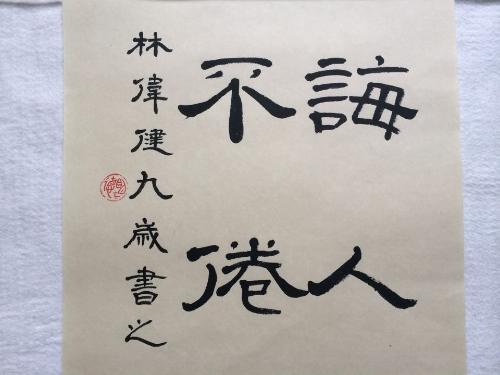 誨人
不倦
林偉健九歲書之